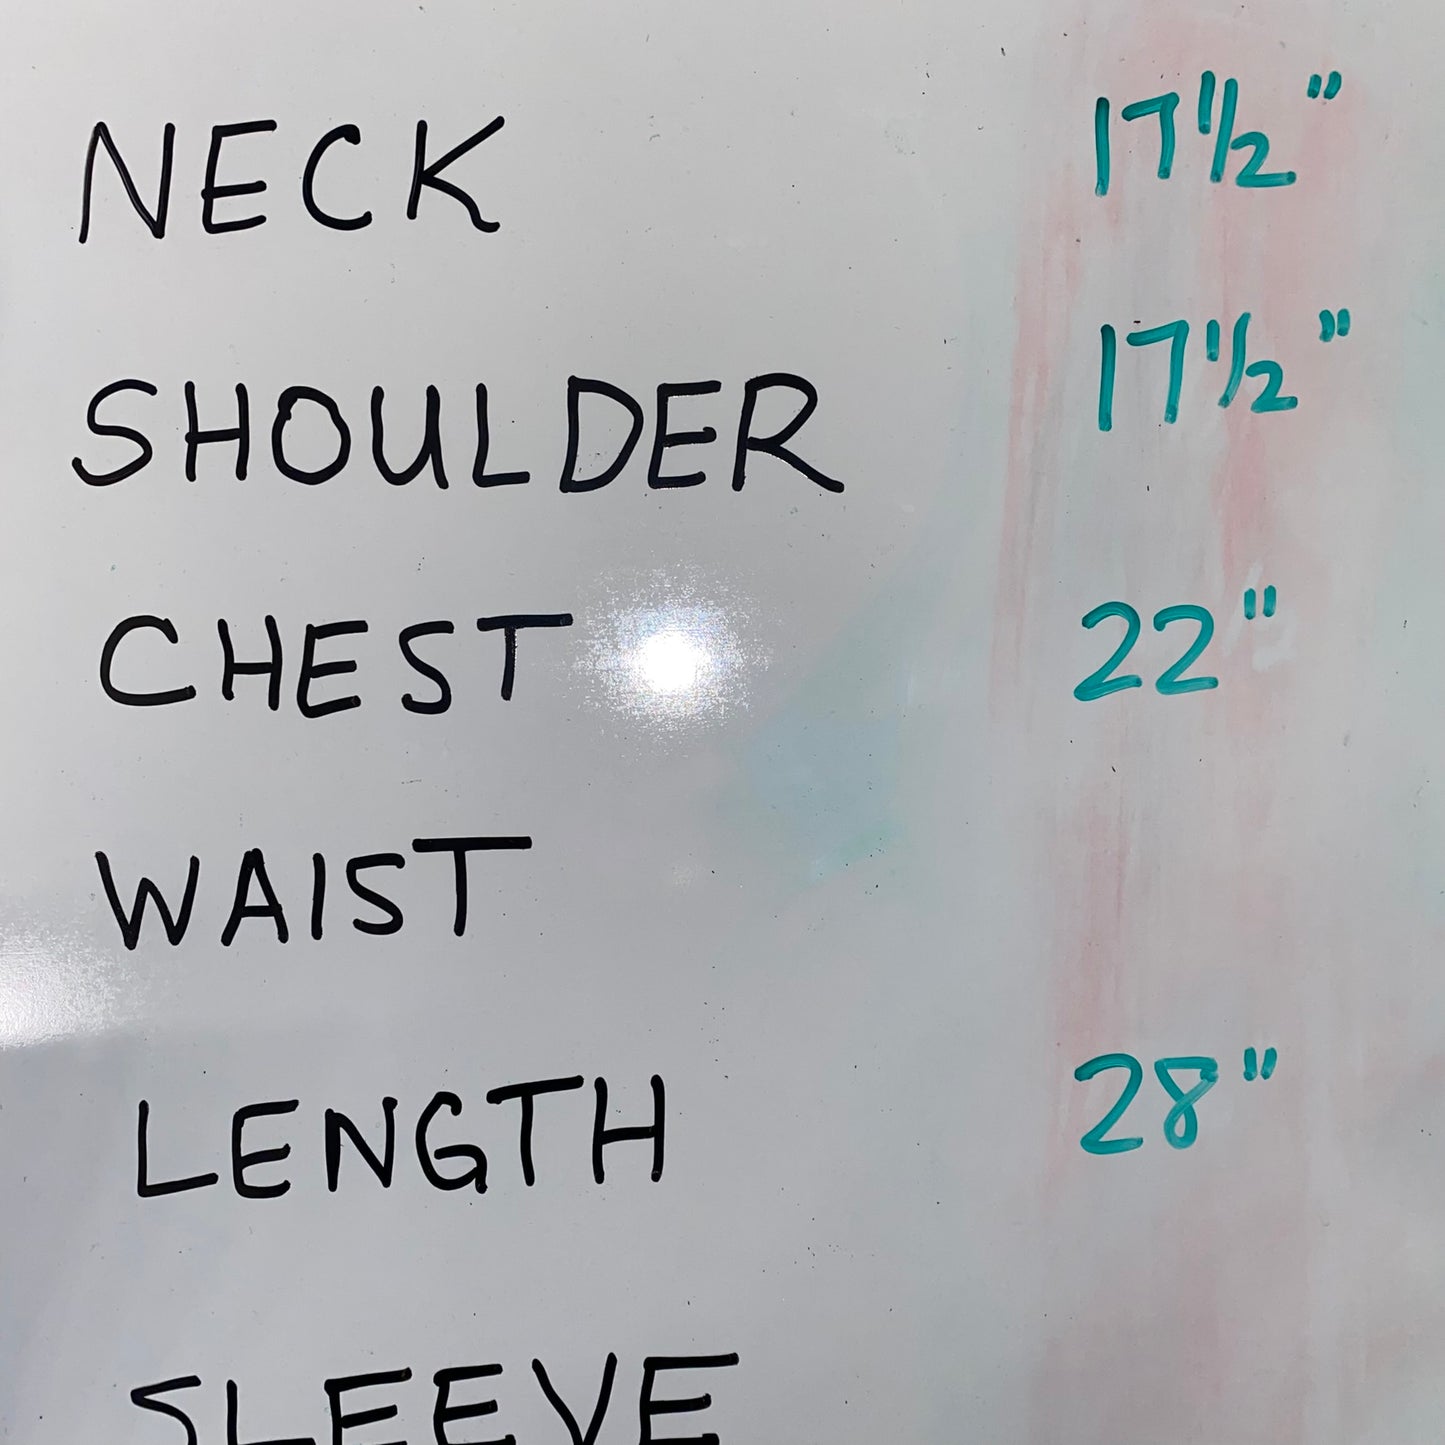 NECK 17 1/2"
SHOULDER 17 1/2"
CHEST 22"
WAIST
LENGTH 28"
SLEEVE